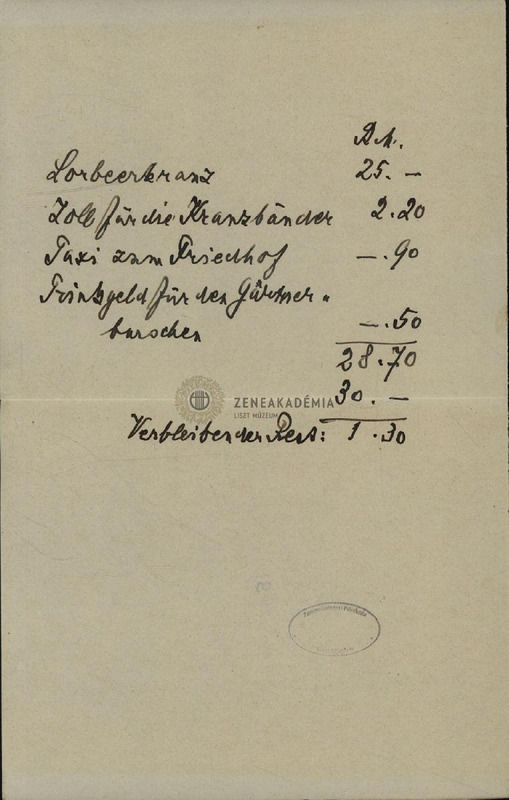 R.M.
Lorbeerkranz 25. –
Zoll für die Kranzbänder 2.20
Taxi zum Friedhof –.90
Trinkgeld für den Gärtner-
burschen –.50
28.70
ZENEAKADÉMIA 30. –
LISZT MÚZEUM
Verbleibender Rest: 1.30